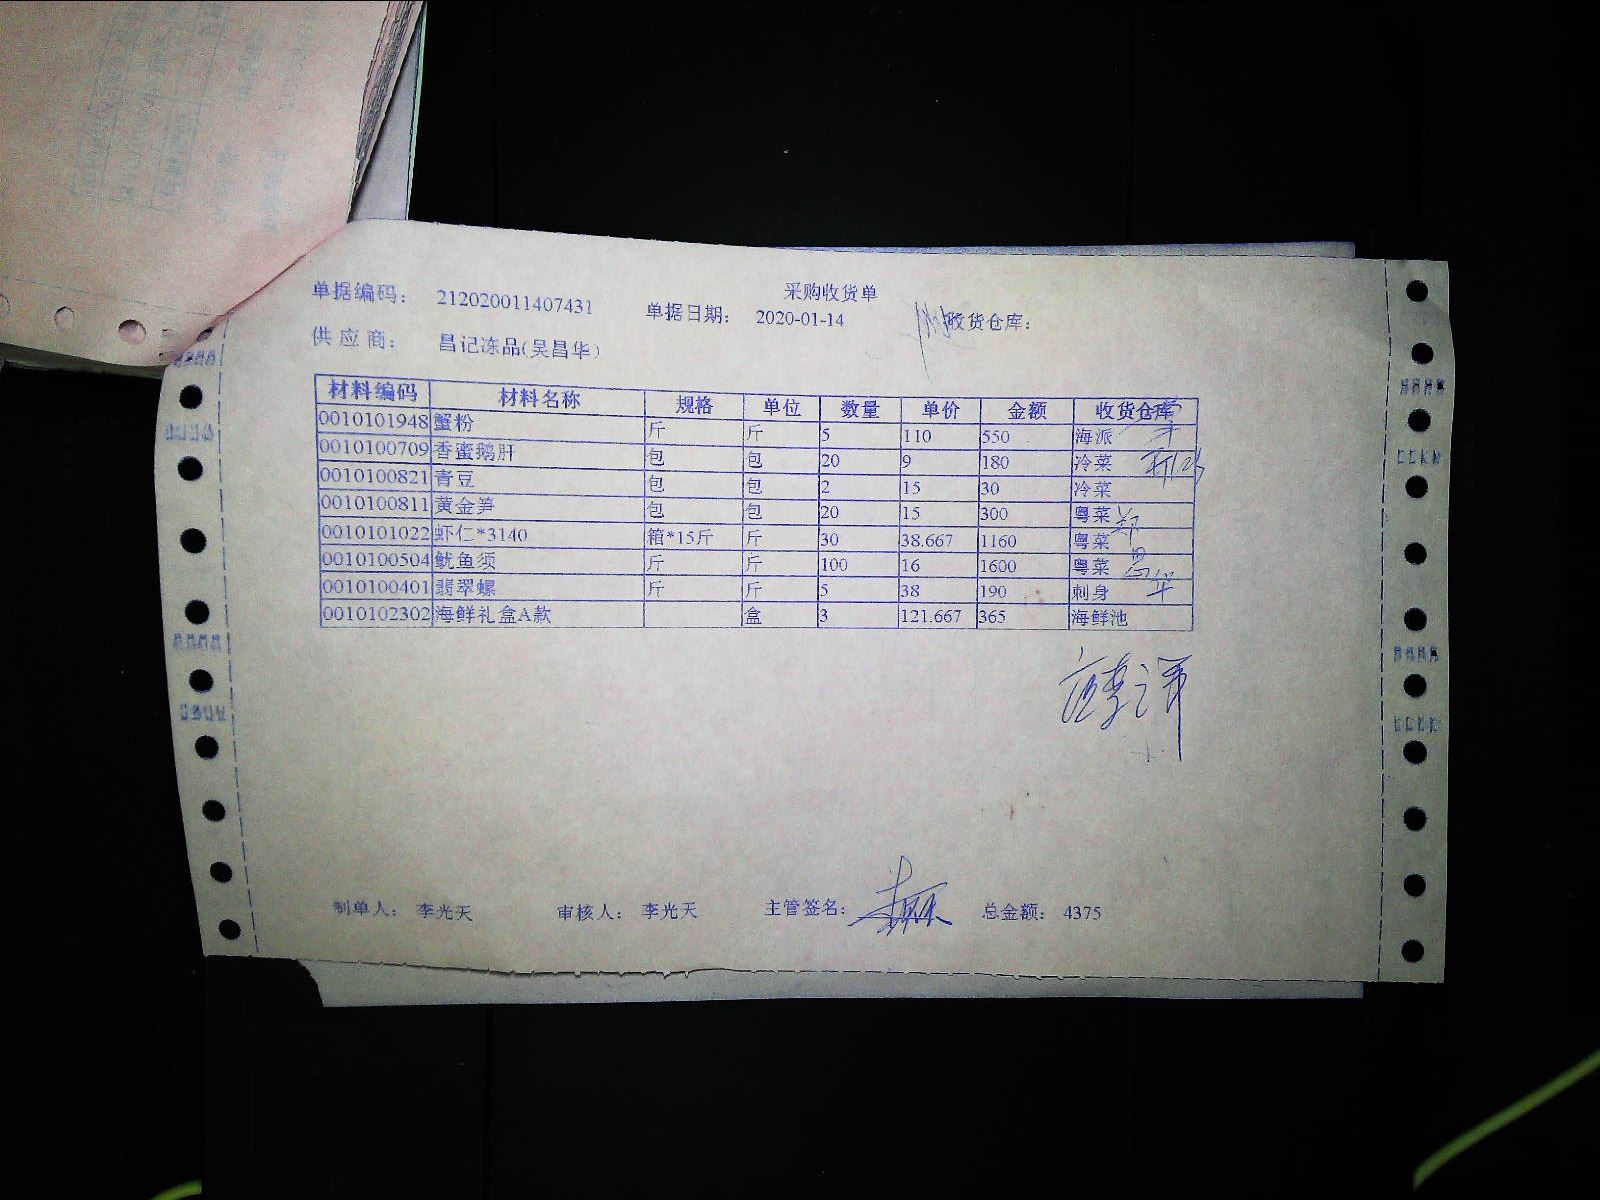 采购收货单
单据编码： 212020011407431 单据日期： 2020-01-14 收货仓库：
供 应 商： 昌记冻品(吴昌华)
材料编码 材料名称 规格 单位 数量 单价 金额 收货仓库
0010101948 蟹粉 斤 斤 5 110 550 海派
0010100709 香蜜鹅肝 包 包 20 9 180 冷菜
0010100821 青豆 包 包 2 15 30 冷菜
0010100811 黄金笋 包 包 20 15 300 粤菜
0010101022 虾仁*3140 箱*15斤 斤 30 38.667 1160 粤菜
0010100504 鱿鱼须 斤 斤 100 16 1600 粤菜
0010100401 翡翠螺 斤 斤 5 38 190 刺身
0010102302 海鲜礼盒A款 盒 3 121.667 365 海鲜池
制单人： 李光天 审核人： 李光天 主管签名： 总金额： 4375